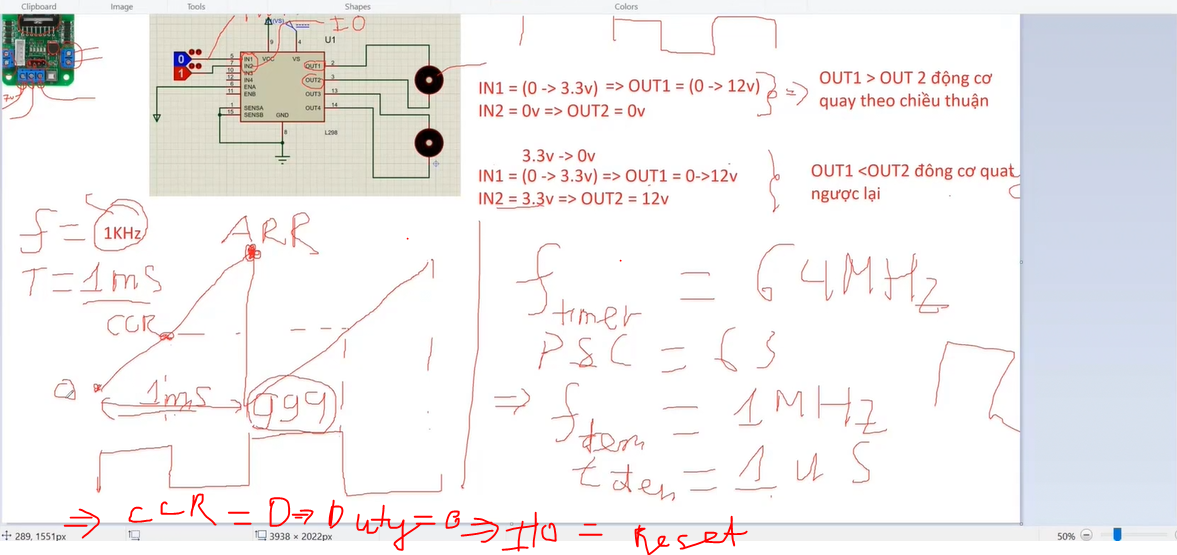 Clipboard
Image
Tools
Shapes
Colors
(VS)
I0
U1
0
1
5 IN1
7 IN2
10 IN3
12 IN4
6 ENA
11 ENB
1 SENSA
15 SENSB
9
VCC
4
VS
OUT1 2
OUT2 3
OUT3 13
OUT4 14
GND
8
L298
7v
IN1 = (0 -> 3.3v) => OUT1 = (0 -> 12v)
IN2 = 0v => OUT2 = 0v
OUT1 > OUT 2 động cơ
quay theo chiều thuận
3.3v -> 0v
IN1 = (0 -> 3.3v) => OUT1 = 0->12v
IN2 = 3.3v => OUT2 = 12v
OUT1 <OUT2 đông cơ quat
ngược lại
f = 1KHz
T = 1ms
ARR
CCR
0
1ms
999
f timer = 64MHz
PSC = 63
=> f dem = 1MHz
t dem = 1us
=> CCR = 0 => Duty = 0 => I/O = Reset
289, 1551px
3938 × 2022px
50%